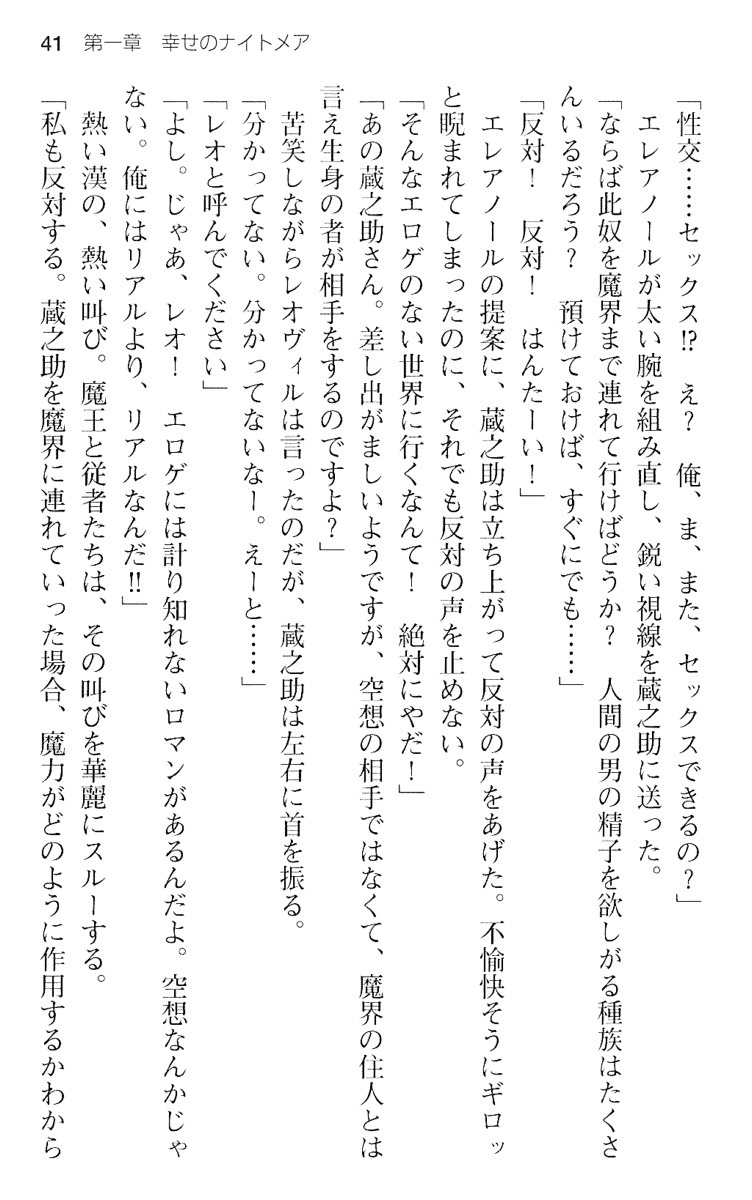 41　第一章　幸せのナイトメア
「性交……セックス!?　え？　俺、ま、また、セックスできるの？」
　エレアノールが太い腕を組み直し、鋭い視線を蔵之助に送った。
「ならば此奴を魔界まで連れて行けばどうか？　人間の男の精子を欲しがる種族はたくさ
んいるだろう？　預けておけば、すぐにでも……」
「反対！　反対！　はんたーい！」
　エレアノールの提案に、蔵之助は立ち上がって反対の声をあげた。不愉快そうにギロッ
と睨まれてしまったのに、それでも反対の声を止めない。
「そんなエロゲのない世界に行くなんて！　絶対にやだ！」
「あの蔵之助さん。差し出がましいようですが、空想の相手ではなくて、魔界の住人とは
言え生身の者が相手をするのですよ？」
　苦笑しながらレオヴィルは言ったのだが、蔵之助は左右に首を振る。
「分かってない。分かってないなー。えーと……」
「レオと呼んでください」
「よし。じゃあ、レオ！　エロゲには計り知れないロマンがあるんだよ。空想なんかじゃ
ない。俺にはリアルより、リアルなんだ!!」
　熱い漢の、熱い叫び。魔王と従者たちは、その叫びを華麗にスルーする。
「私も反対する。蔵之助を魔界に連れていった場合、魔力がどのように作用するかわから